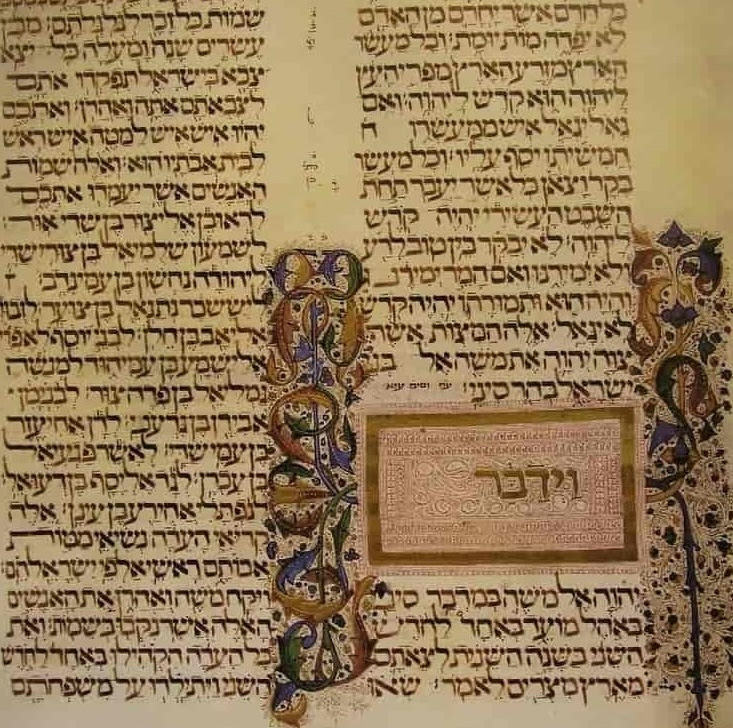 כל חרם אשר יחרם מן האדם
לא יפדה מות יומת׃ וכל מעשר
הארץ מזרע הארץ מפרי העץ
ליהוה הוא קדש ליהוה׃ ואם
גאל יגאל איש ממעשרו ח
חמשיתו יסף עליו׃ וכל מעשר
בקר וצאן כל אשר יעבר תחת
השבט העשירי יהיה קדש
ליהוה׃ לא יבקר בין טוב לרע
ולא ימירנו ואם המר ימירנו
והיה הוא ותמורתו יהיה קדש
לא יגאל׃ אלה המצות אשר
צוה יהוה את משה אל בני
ישראל בהר סיני׃
וידבר
יהוה אל משה במדבר סיני
באהל מועד באחד לחדש
השני בשנה השנית לצאתם
מארץ מצרים לאמר׃ שאו
שמות כל זכר לגלגלתם׃ מבן
עשרים שנה ומעלה כל יצא
צבא בישראל תפקדו אתם
לצבאתם אתה ואהרן׃ ואתכם
יהיו איש איש למטה איש ראש
לבית אבתיו הוא׃ ואלה שמות
האנשים אשר יעמדו אתכם
לראובן אליצור בן שדיאור׃
לשמעון שלמיאל בן צורישדי
ליהודה נחשון בן עמינדב׃
ליששכר נתנאל בן צוער׃ לזבו
אליאב בן חלן׃ לבני יוסף לאפרי
אלישמע בן עמיהוד למנשה
גמליאל בן פדהצור׃ לבנימן
אבידן בן גדעני׃ לדן אחיעזר
בן עמישדי׃ לאשר פגעיאל
בן עכרן׃ לגד אליסף בן דעואל׃
לנפתלי אחירע בן עינן׃ אלה
קריאי העדה נשיאי מטות
אבותם ראשי אלפי ישראל הם׃
ויקח משה ואהרן את האנשים
האלה אשר נקבו בשמות׃ ואת
כל העדה הקהילו באחד לחדש
השני ויתילדו על משפחתם